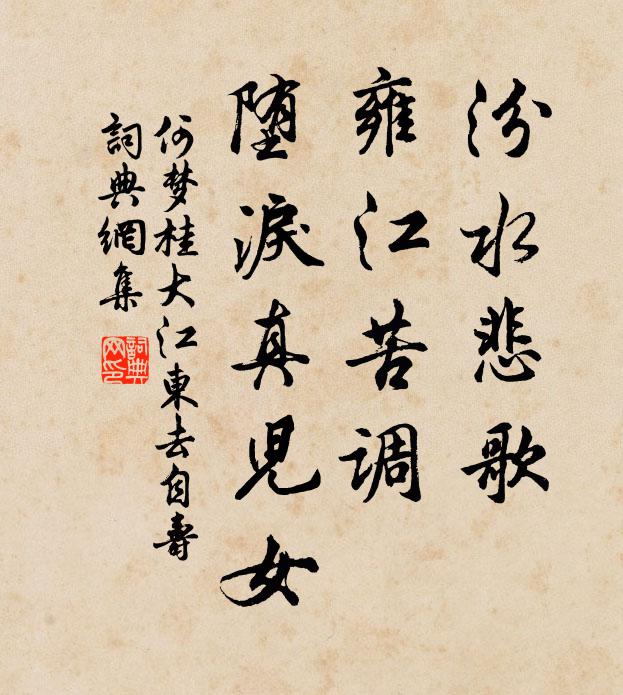 汾水悲歌
雍江苦调
堕淚真兒女
何梦桂大江東去自壽
詞典網集
詞典網印